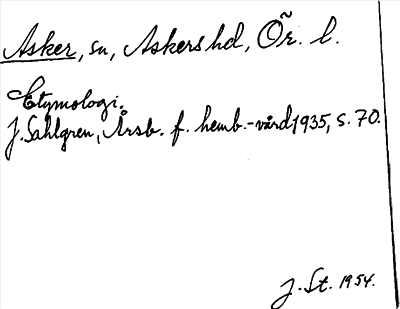 Asker, sn, Askers hd, Ör. l.
Etymologi.
J. Sahlgren, Årsb. f. hemb.-vård 1935, s. 70.
J. St. 1954.